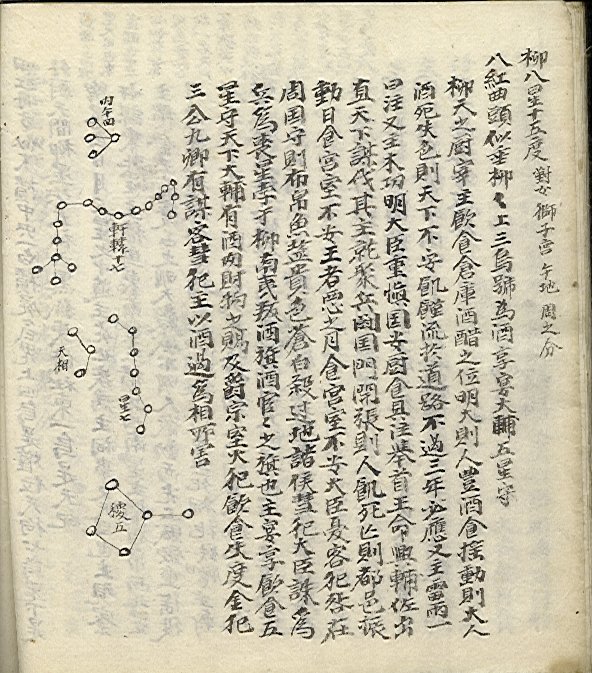 柳八星十五度 對女 獅子宮 午地 周之分
八紅曲頭似垂柳〻上三烏號為酒享宴大輔五星守
柳天之厨宰主飲食倉庫酒醋之位明大則人豊酒食搖動則大人
酒死失色則天下不安飢饉流扵道路不過三年必應又主雷雨一
曰注又主木功明大臣重慎国安厨食具注舉首王命 輔佐出
直天下謀伐其主就聚兵囚国門開張則人飢死亡則都邑振
動日食宮室不安王者惡之月食宮室不安大臣憂客犯咎在
周国守則布帛魚塩貴色蒼白殺邊地諸侯彗犯大臣誅為
兵為喪星孛于柳南夷叛酒旗酒官〻之旗也主宴享飲食五
星守天下大輔有酒肉財物之賜及爵宗室火犯飲食失度金犯
三公九卿有謀客彗犯主以酒過為相所害
内平四
軒轅十七
天相
星七
稷五